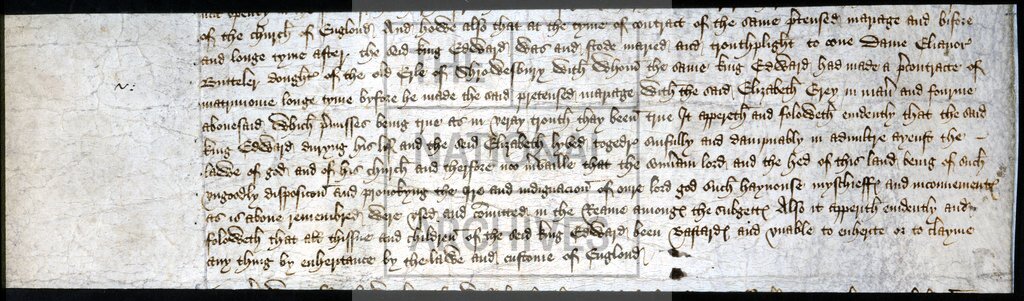 of the church of Englond And howe also that at the tyme of contract of the same p'tensed mariage and bifore
and longe tyme after the seid king Edward was and stode maried and trouthplight to oone Dame Elianor
Butteler dought' of the old Erle of Shrowesbury with whom the same king Edward had made a p'contracte of
matrimonie longe tyme bifore he made the said pretensed mariage with the said Elizabeth Grey in man' and fourme
abovesaid Which p'misses being true as in veray trouth thay been true It appereth and foloweth evidently that the said
king Edward duryng his lif and the seid Elizabeth lyved togedr' sinfully and dampnably in adultre ayenst the
lawe of god and of his church and therfore no mvaile that the sovrain lord and the hed of this land being of such
ungodly disposicion and provokyng the Ire and indignacion of oure lord god such haynouse myschieff' and inconvenient'
as is above remembred were used and comitted in the Reame amongs the subgett' Also it apperith evidently and
foloweth that all thissue and children of the seid king Edward been bastard' and unable to enherite or to clayme
any thing by enheritance by the lawe and custome of Englond
THE
NATIONAL
ARCHIVES